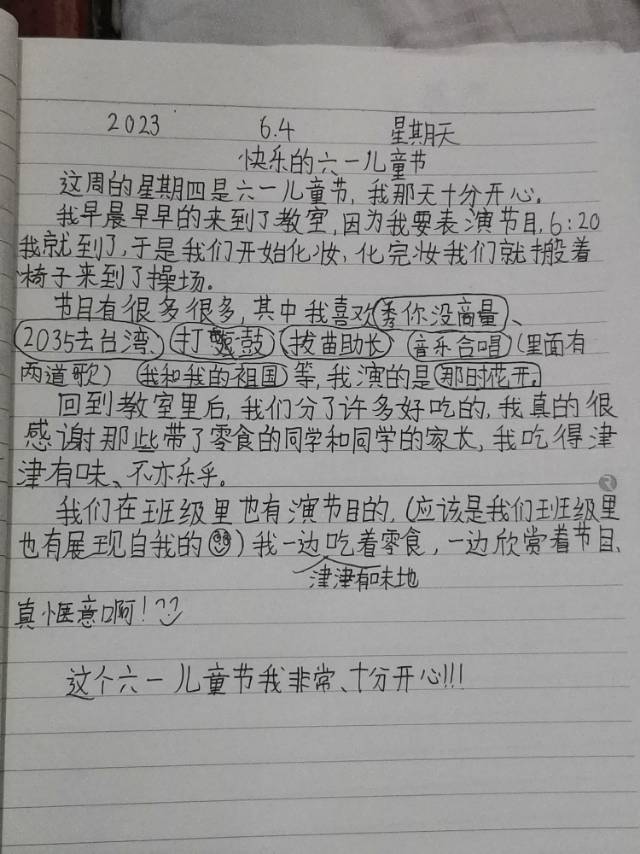 2023 6.4 星期天
快乐的六一儿童节
这周的星期四是六一儿童节,我那天十分开心。
我早晨早早的来到了教室,因为我要表演节目,6:20
我就到了,于是我们开始化妆,化完妆我们就搬着
椅子来到了操场。
节目有很多很多,其中我喜欢秀你没商量、
2035去台湾、打鼓、拔苗助长、音乐合唱(里面有
两道歌)我和我的祖国等,我演的是那时花开。
回到教室里后,我们分了许多好吃的,我真的很
感谢那些带了零食的同学和同学的家长,我吃得津
津有味、不亦乐乎。
我们在班级里也有演节目的,(应该是我们班级里
也有展现自我的)我一边吃着零食,一边欣赏着节目、
津津有味地
真惬意啊!
这个六一儿童节我非常、十分开心!!!